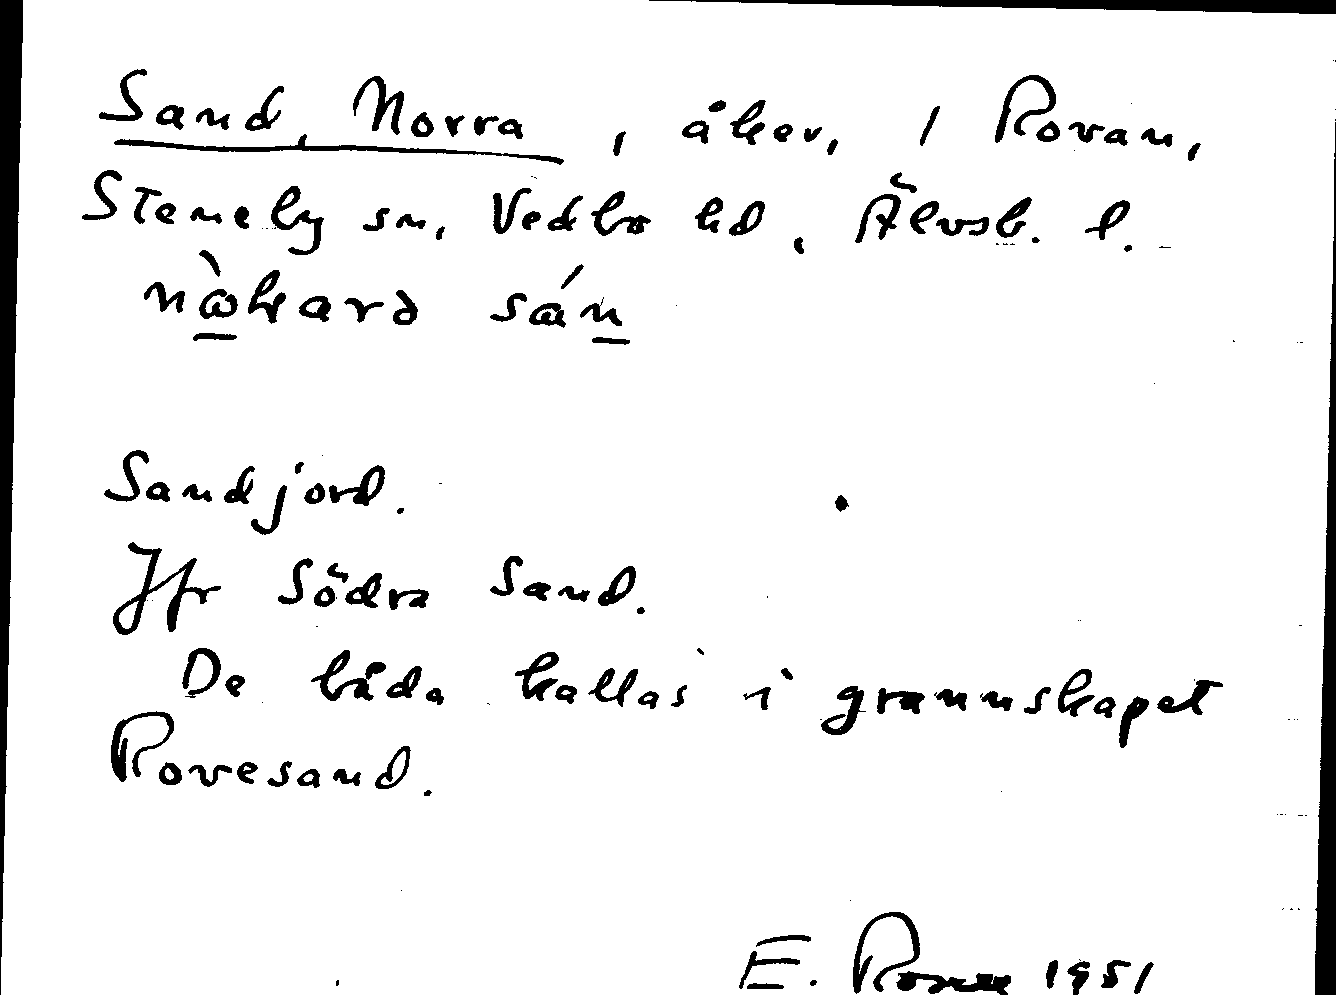 Sand, Norra, åker, 1 Rovan,
Steneby sn, Vedbo hd, Älvsb. l.

Sandjord.
Jfr Södra Sand.
De båda kallas i grannskapet
Rovesand.
E. 1951